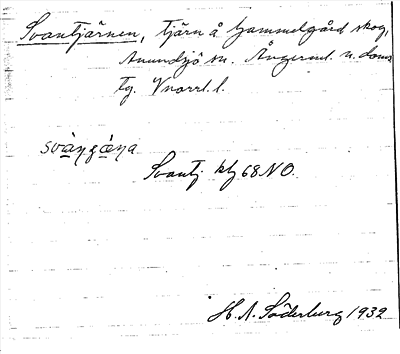 Svantjärnen, tjärn å Gammelgård skog,
Anundsjö sn. Ångerml. n. doms.
tg. Vnorrl. l.
Svantj. ktg 68 NO.
H. A. Söderberg 1932